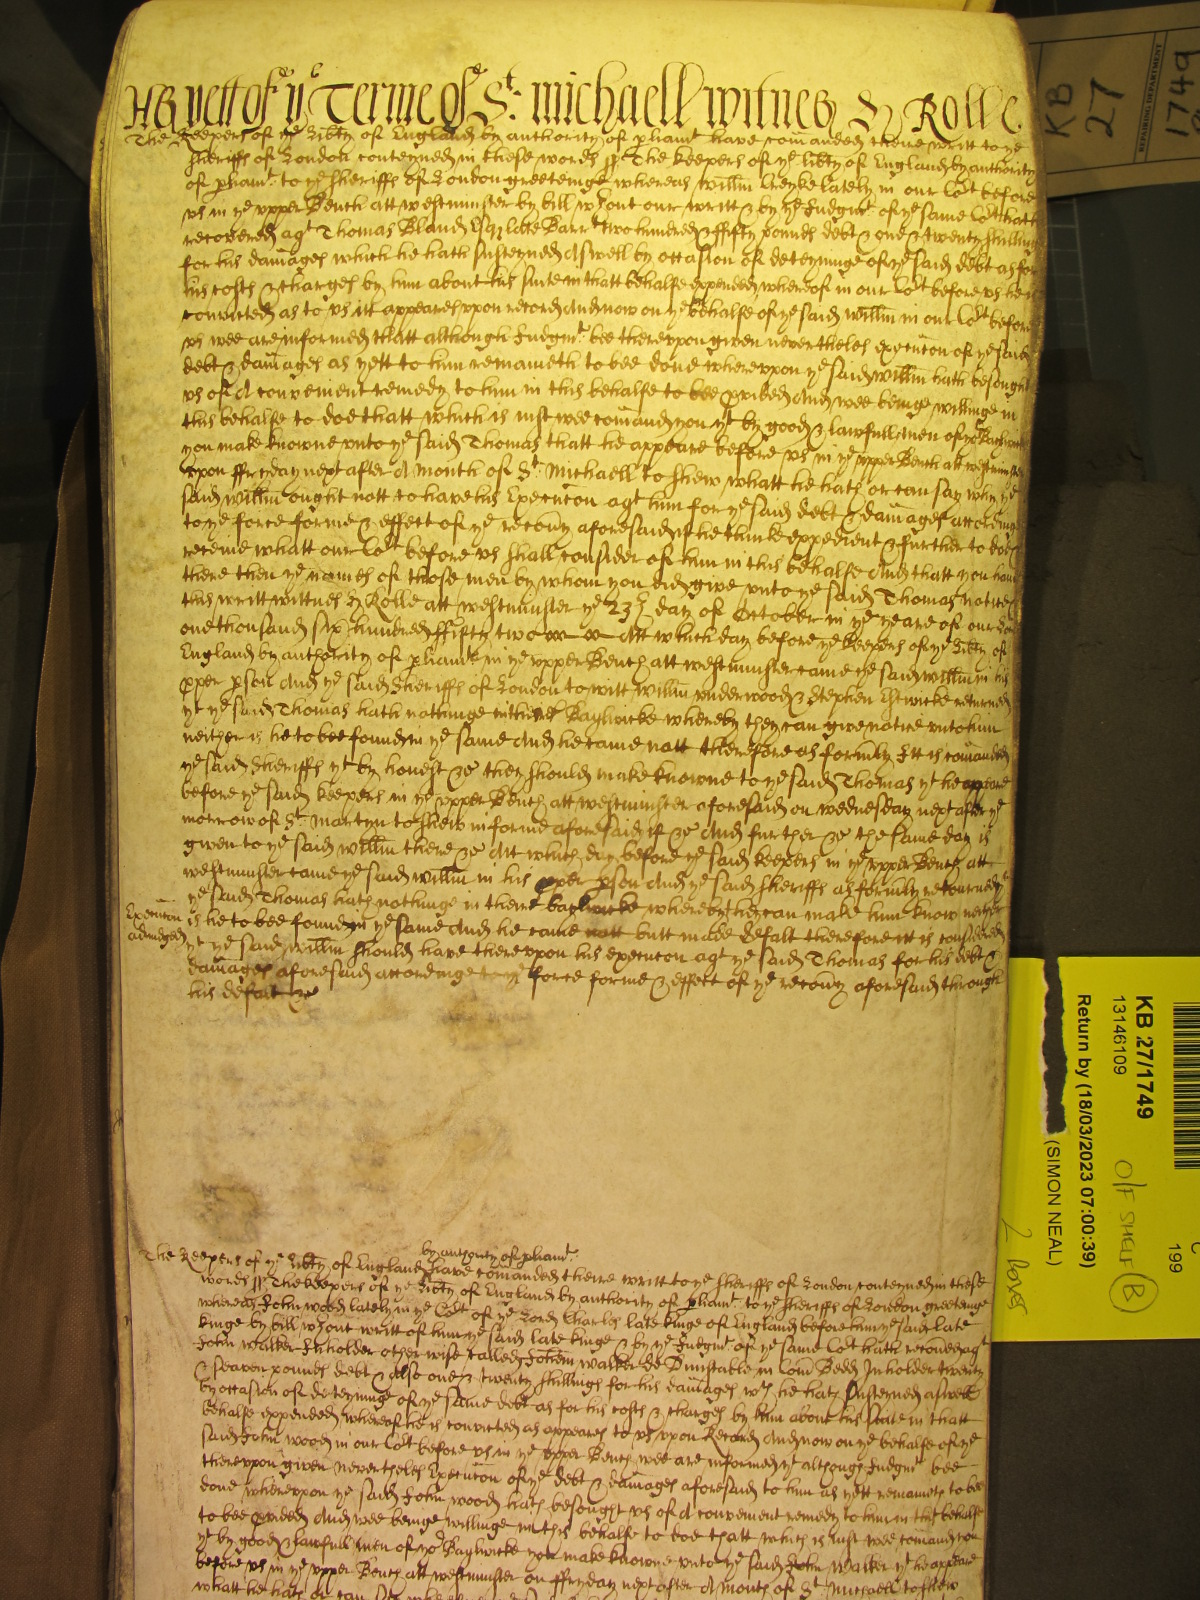 As yett of ye Terme of St. Michaell witnes H Rolle
The Keepers of ye libty of England by authority of pliamt have comanded theire writt to ye
Sheriffs of London conteyned in these words ss The keepers of ye libty of England by authority
of pliamt. to ye Sheriffs of London greetinge whereas Willm lately in our Cot before
us in ye upper Bench att westminster by bill wthout our writt & by ye Judgmt of ye same Cot hath
recovered agt Thomas Bland Esqr late Barrt two hundred & ffifty pounds debt & one & twenty shillings
for his damages which he hath susteyned Aswell by occasion of deteyninge of ye said debt as for
his costs & charges by him about his suite in thatt behalfe expended whereof in our Cot before us he is
convicted as to us itt appeares upon record And now on ye behalfe of ye said Willm in our Cot before
us wee are informed thatt although Judgmt. bee thereupon given nevertheles execucon of ye said
debt & damages as yett to him remaineth to bee done whereupon ye said Willm hath besought
us of A convenient remedy to him in this behalfe to bee pvided And wee beinge willinge in
this behalfe to doe thatt which is iust wee comand you yt by good & lawfull men of yor Baylwicke
you make knowne unto ye said Thomas thatt he appeare before us in ye upper Bench att westminster
upon ffryday next after A month of St. Michaell to shew whatt he hath or can say why ye
said Willm ought nott to have his Execucon agt him for ye said debt & damages accordinge
to ye force forme & effect of ye recovy aforesaid if he thinke expedient & further to doe &
receive whatt our Cot before us shall consider of him in this behalfe And thatt you have
there then ye names of those men by whom you did give unto ye said Thomas notice &
this writt wittnes H Rolle att westminster ye 23d day of October in ye yeare of our Lord
one thousand six hundred ffifty two Att which day before ye keepers of ye libty of
England by authority of pliamt in ye upper Bench att westminster came ye said Willm in his
pper pson And ye said Sheriffs of London to witt Willm underwood & Stephen Estwicke returned
yt ye said Thomas hath nothinge in theire Baylwicke whereby they can give notice unto him
neither is he to bee found in ye same And he came nott therefore as formly Itt is comanded
ye said Sheriffs yt by honest &c they should make knowne to ye said Thomas yt he appeare
before ye said keepers in ye upper Bench att westminster aforesaid on wednesday next after ye
morrow of St. Martyn to shew in forme aforesaid if &c And further &c the same day is
given to ye said Willm there &c Att which day before ye said keepers in ye upper Bench att
westminster came ye said Willm in his pper pson And ye said Sheriffs as formly retourned yt
ye said Thomas hath nothinge in theire baylwicke whereby they can make him know neither
Execucon
adiudged
is he to bee found in ye same And he came nott butt made defalt therefore itt is considered
yt ye said Willm should have thereupon his execucon agt ye said Thomas for his debt &
damages aforesaid accordinge to ye force forme & effect of ye recovy aforesaid through
his defalt &c
by authority of pliamt.
The Keepers of ye libty of England have comanded theire writt to ye Sheriffs of London conteyned in these
words ss The keepers of ye libty of England by authority of pliamt. to ye Sheriffs of London greetinge
whereas John wood lately in ye Cot of ye Lord Charles late kinge of England before him ye said late
kinge by bill wthout writt of him ye said late kinge & by ye Judgmt of ye same Cot hath recoved agt
John walker Inholder otherwise called John walker de Dunstable in Com Bedd Inholder twenty
& seaven pounds debt & Also one & twenty shillings for his damages wch he hath susteyned aswell
by occasion of deteyninge of ye same debt as for his costs & charges by him about his suite in thatt
behalfe expended whereof he is convicted as appeares to us upon Record And now on ye behalfe of ye
said John wood in our Cot before us in ye upper Bench wee are informed yt although Judgmt bee
thereupon given nevertheles Execucon of ye debt & damages aforesaid to him as yett remaineth to bee
done whereupon ye said John wood hath besought us of A convenient remedy to him in this behalfe
to bee pvided And wee beinge willinge in this behalfe to doe thatt which is iust wee comand you
yt by good & lawfull men of yor Baylwicke you make knowne unto ye said John walker yt he appeare
before us in ye upper Bench att westminster on ffryday next after A month of St. Michaell to shew
whatt he hath or can say
KB
27
1749
REPAIRING DEPARTMENT
KB 27/1749
13146109
Return by (18/03/2023 07:00:39)
(SIMON NEAL)
O/F SHELF B
2 boxes
C
199